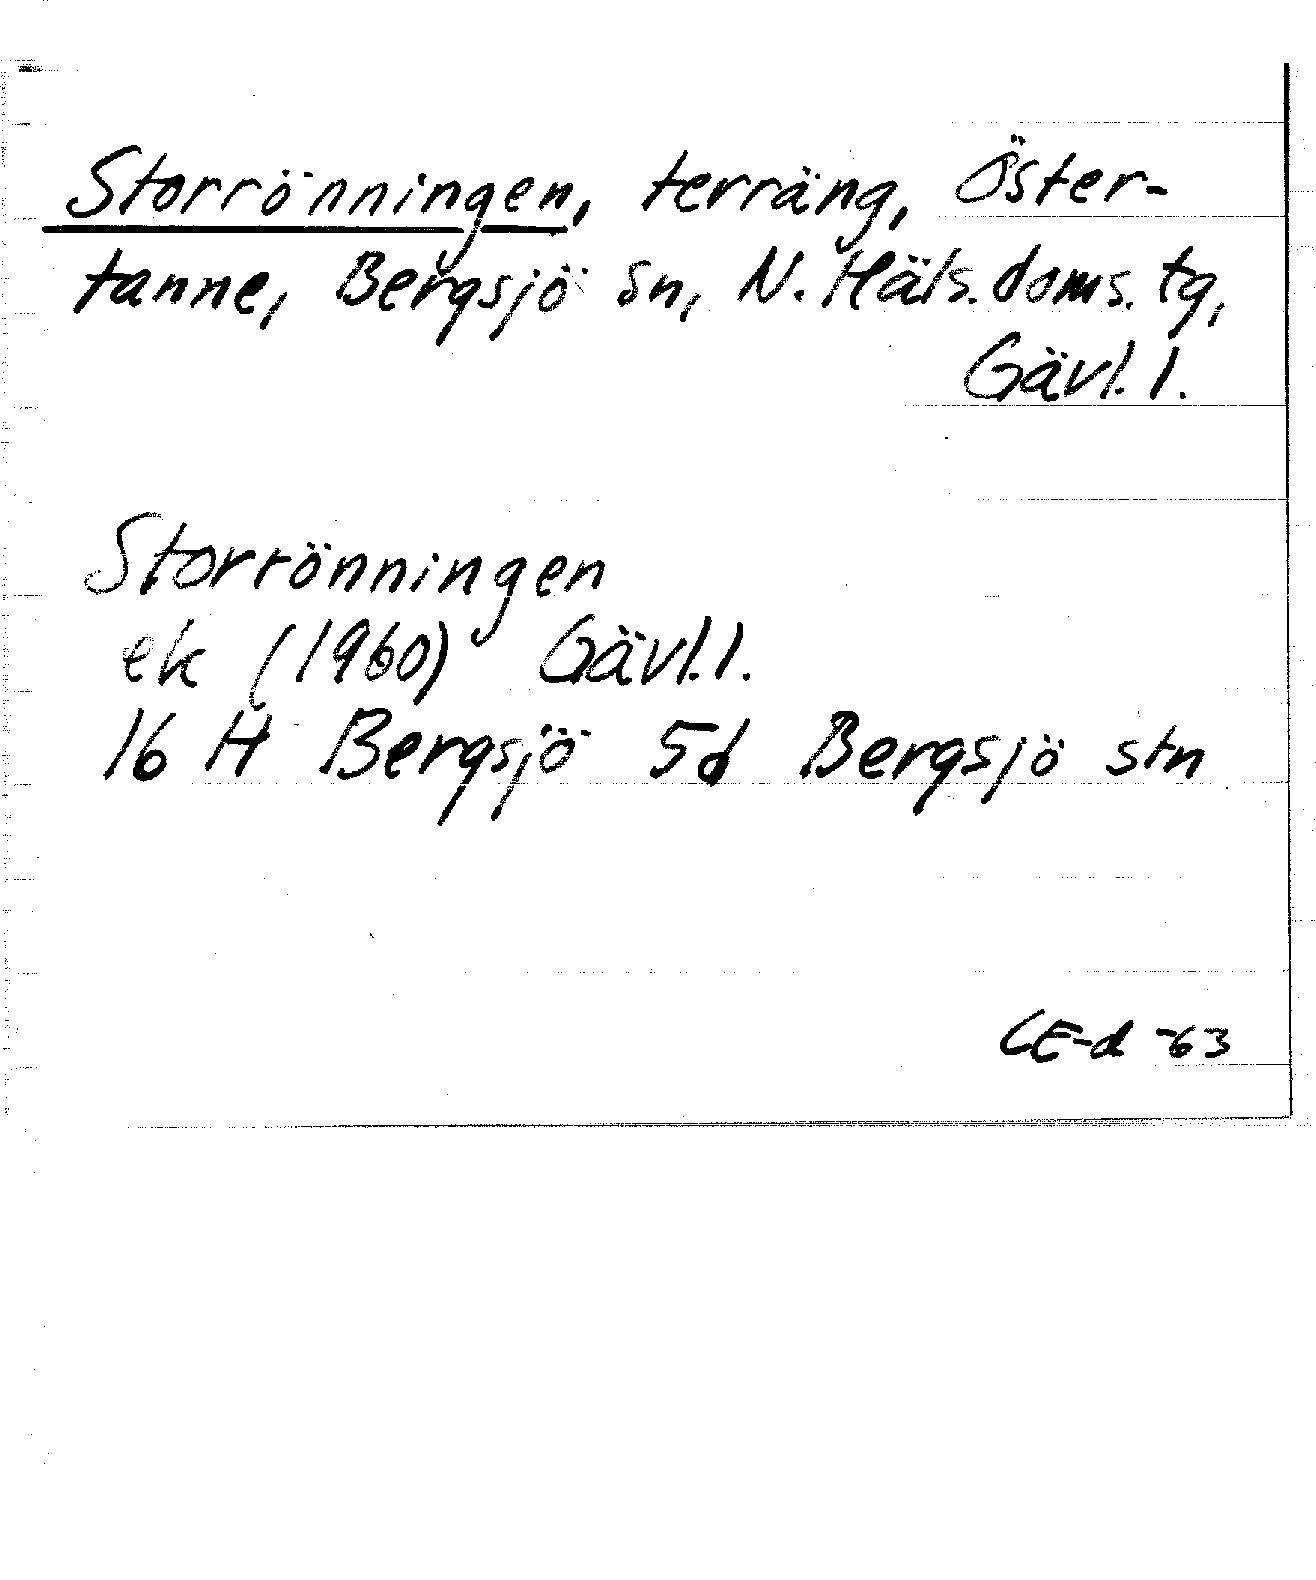 Storrönningen, terräng, Öster-
tanne, Bergsjö sn, N. Häls. doms. tg,
Gävl. l.
Storrönningen
ek (1960) Gävl. l.
16 H Bergsjö 5d Bergsjö stn
CE-d -63